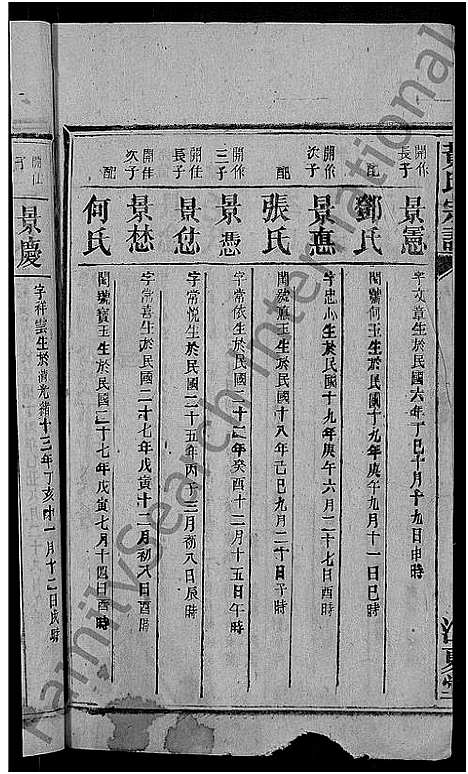 黃氏宗譜
江夏堂
開作長子 景憲 字文章生於民國六年丁巳十月十九日申時
配 鄧氏 閨號何玉生於民國十九年庚午九月十一日巳時
開作次子 景惠 字忠心生於民國十九年庚午六月二十七日酉時
配 張氏 閨號蕙玉生於民國十八年己巳九月二十日子時
開作三子 景憑 字常依生於民國二十二年癸酉十二月十五日午時
開仕長子 景 字常悅生於民國二十五年丙子三月初八日辰時
開仕次子 景 字常喜生於民國二十七年戊寅十二月初八日酉時
配 何氏 閨號寶玉生於民國二十七年戊寅七月十四日酉時
開仕 子 景慶 字祥雲生於清光緒十三年丁亥 十一月十二日戌時
FamilySearch International